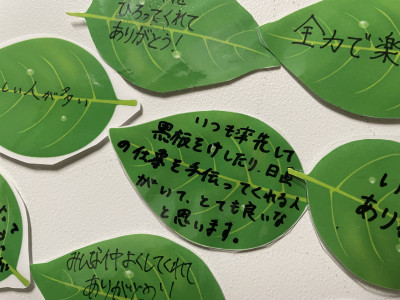 ひろってくれて
ありがとう!
全力で楽
しい人が多い
いつも率先して
黒板をけしたり、日直
の仕事を手伝ってくれる人
がいて、とても良いな
と思います。
みんな仲よくしてくれて
ありがとう